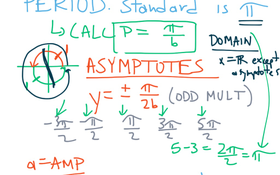 PERIOD: Standard is π
↳ CALC P = π/b
DOMAIN
x = ℝ except
asymptotes
ASYMPTOTES
y = ± π/2b (ODD MULT)
-3π/2 -π/2 π/2 3π/2 5π/2
5-3 = 2π/2 = π
a = AMP